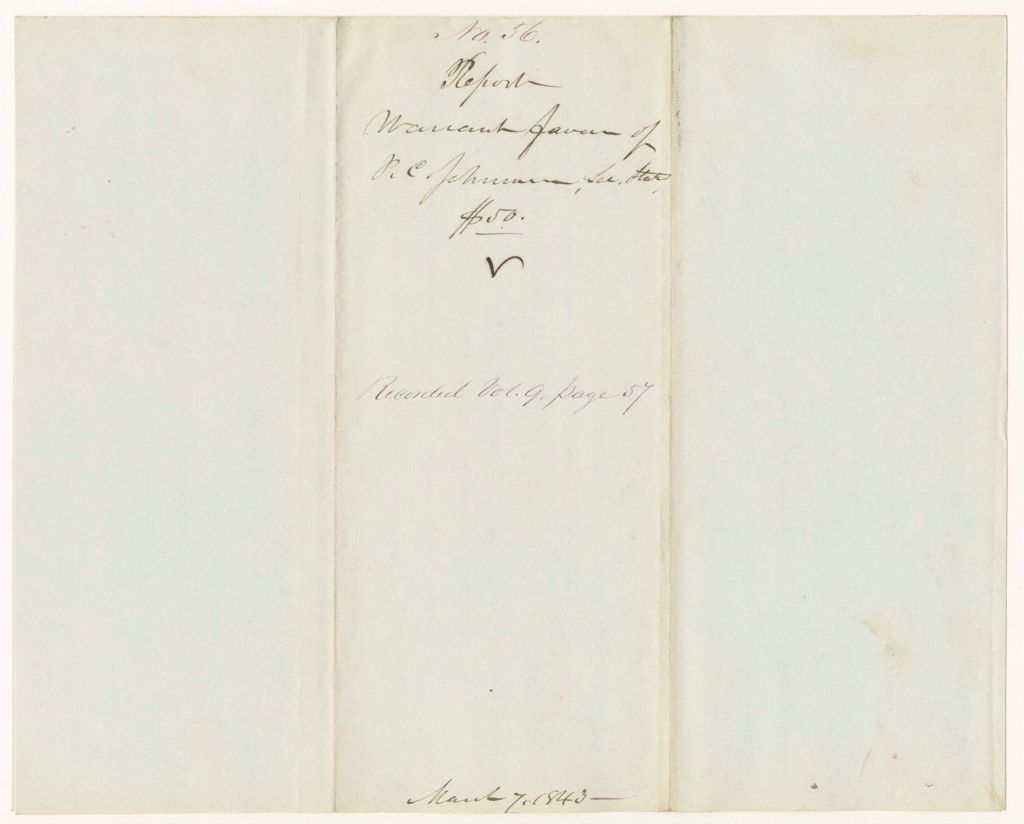 No. 56.
Report
Warrant favour of
P. C. Johnson, Sec. State,
$50.
Recorded Vol. 9. page 57
March 7. 1843